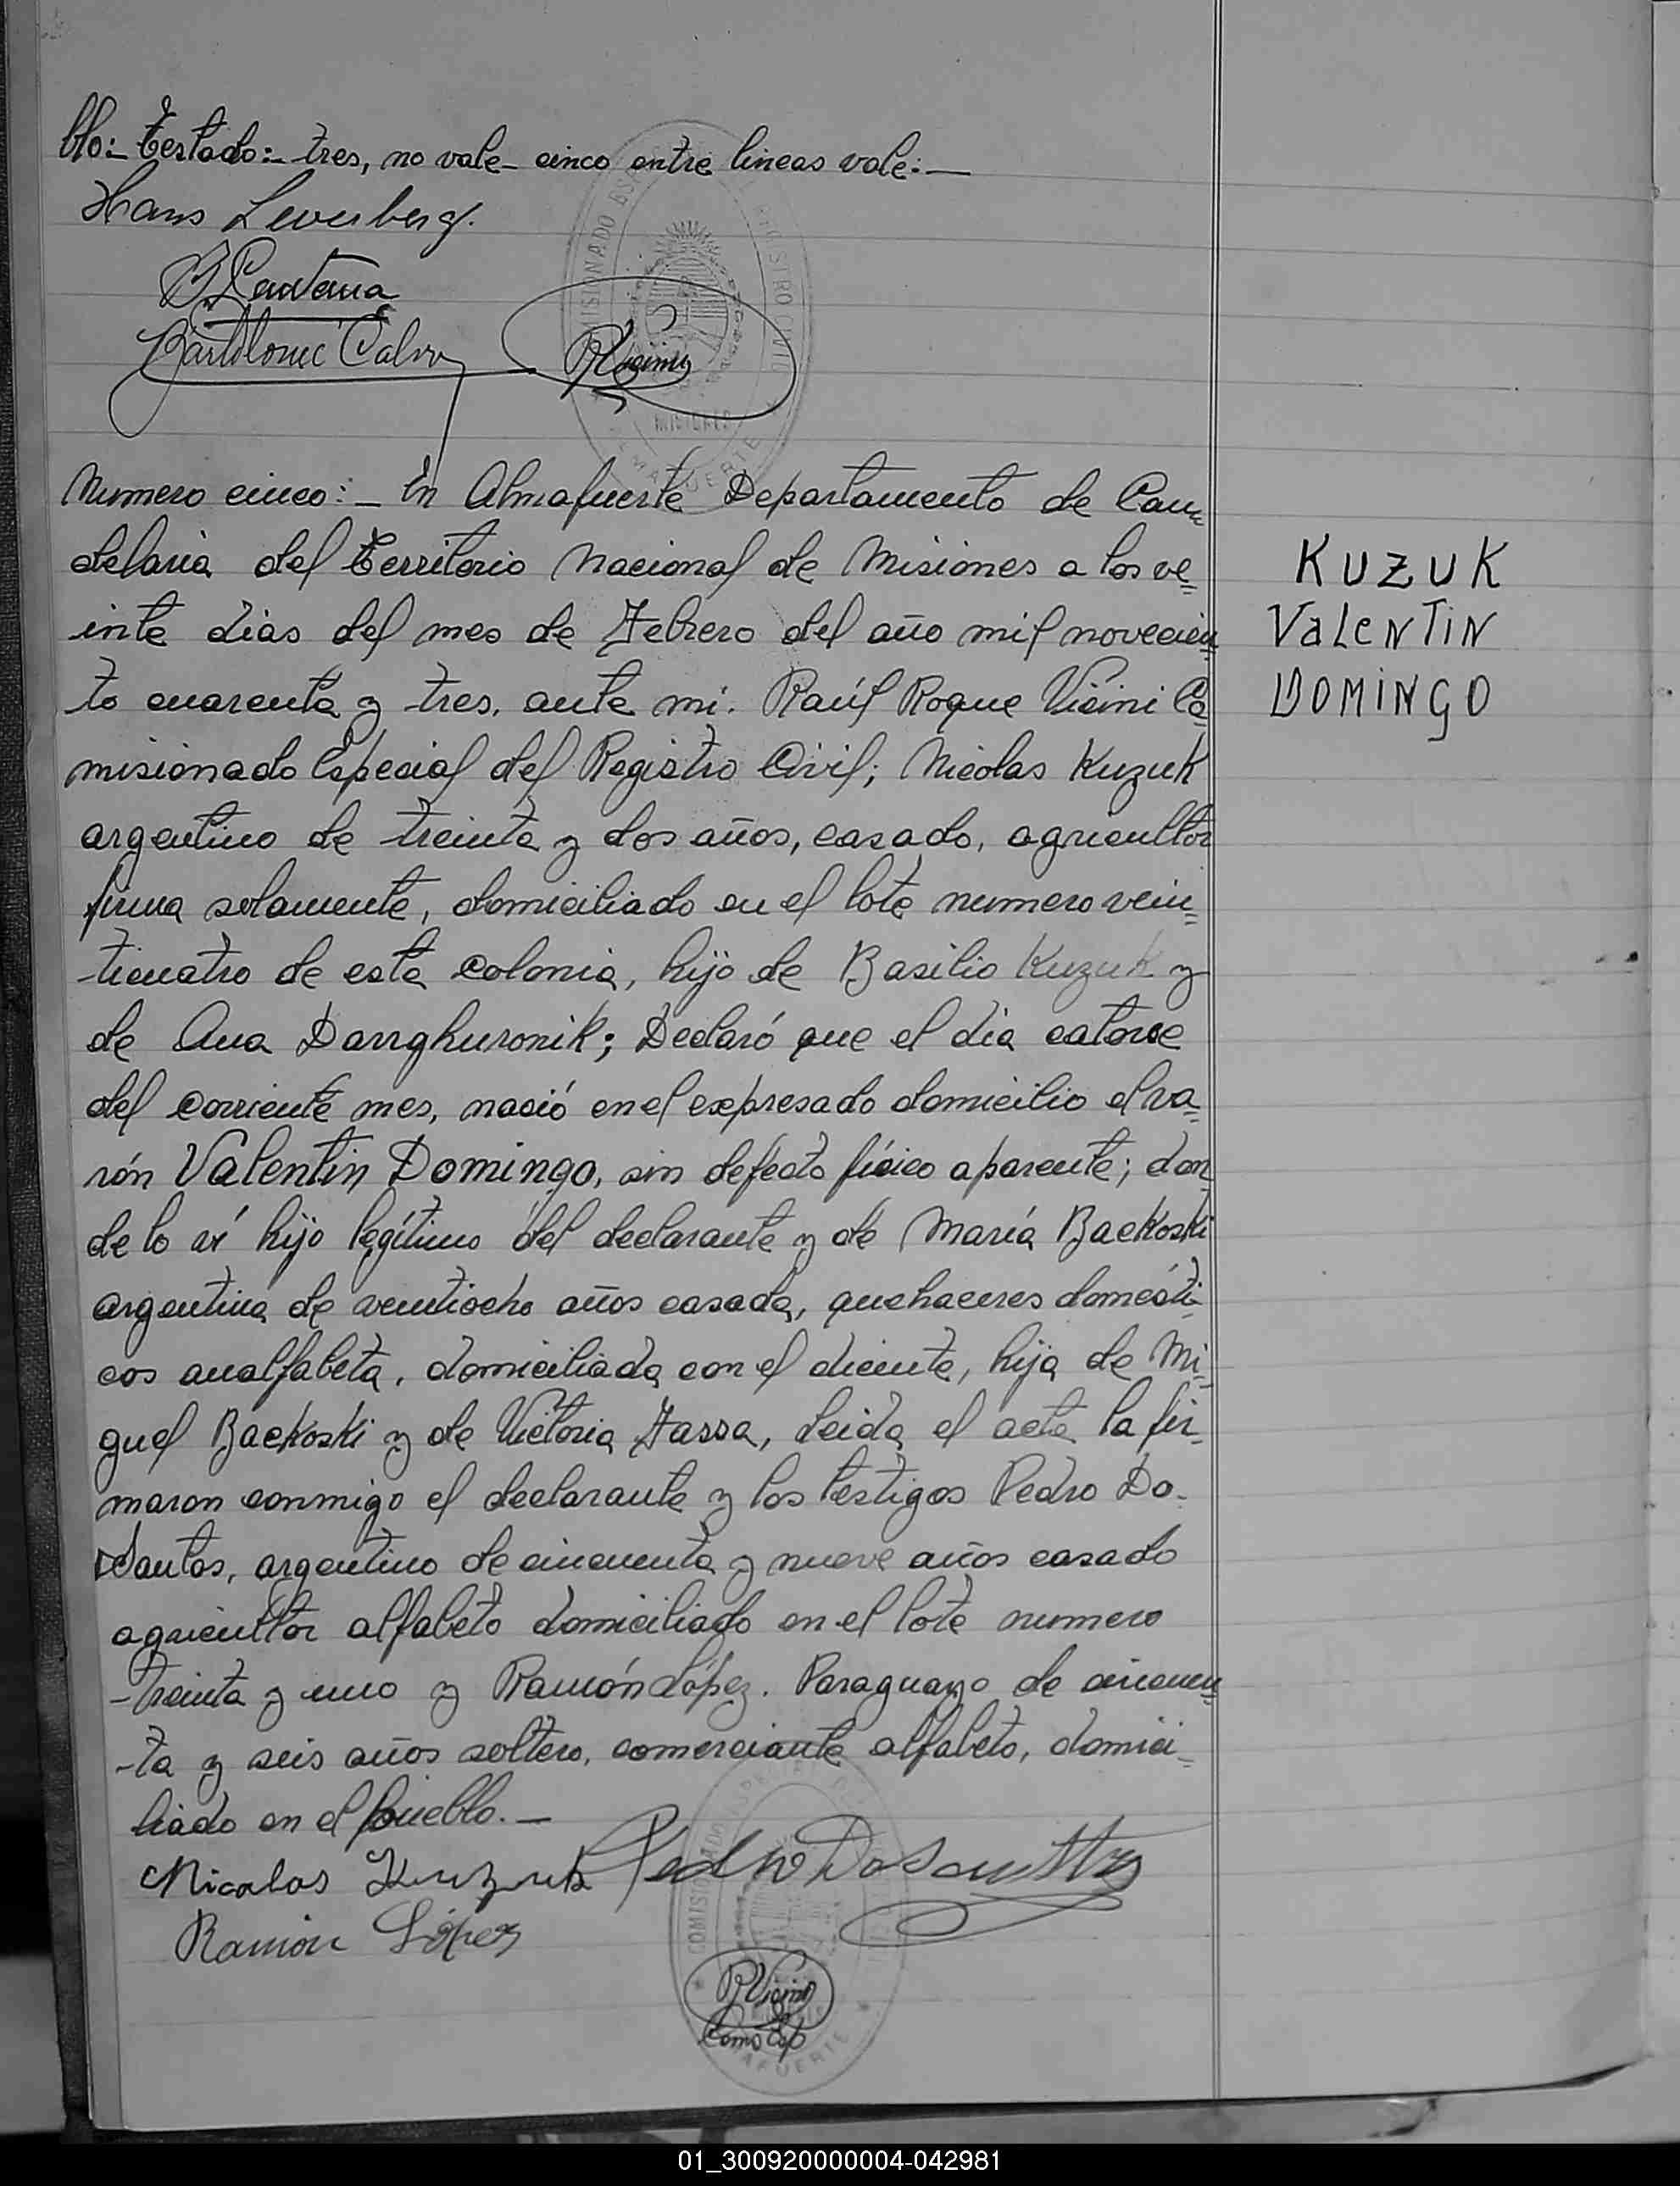 blo:- Testado:- tres, no vale- cinco entre lineas vale:-
Hans
Bartolomé Calvo
RVicini
COMISIONADO REGISTRO CIVIL
MISIONES
ALMAFUERTE
Numero cinco:- En Almafuerte Departamento de Can=
delaria del Territorio Nacional de Misiones a los ve=
inte dias del mes de Febrero del año mil novecien=
to cuarenta y tres, ante mi. Raúl Roque Vicini Co=
misionado Especial del Registro Civil; Nicolas Kuzuk
argentino de treinta y dos años, casado, agricultor
firma solamente, domiciliado en el lote numero vein=
-ticuatro de esta Colonia, hijo de Basilio Kuzuk y
de Ana Darrghuronik; Declaró que el dia catorce
del corriente mes, nació en el expresado domicilio el va=
rón Valentin Domingo, sin defecto físico aparente; don
de lo ví hijo legítimo del declarante y de María Backoski
argentina de veintiocho años casada, quehaceres domésti-
cos analfabeta, domiciliada con el diciente, hija de Mi=
guel Backoski y de Victoria Fassa, Leida el acta la fir-
maron conmigo el declarante y los testigos Pedro Do-
Santos, argentino de cincuenta y nueve años casado
agricultor alfabeto domiciliado en el lote numero
-treinta y uno y Ramón López. Paraguayo de cincuen=
-ta y seis años soltero, comerciante alfabeto, domici=
liado en el pueblo.-
Nicolas Kuzuk Pedro Do Santos
Ramón López
COMISIONADO
RVicini
Como Esp
ALMAFUERTE
KUZUK
VaLeNTiN
DOMINGO
01_300920000004-042981